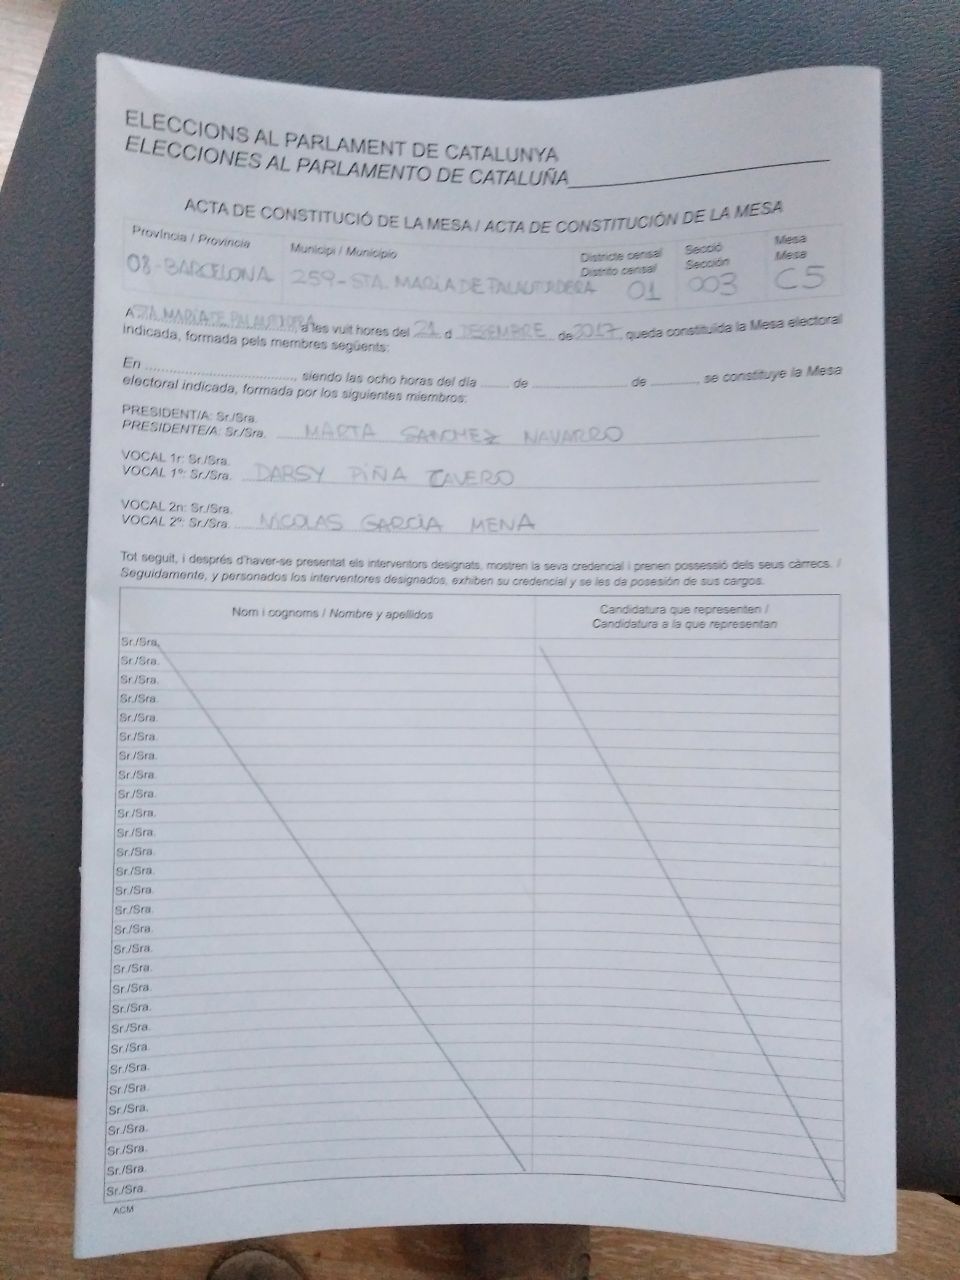 ELECCIONS AL PARLAMENT DE CATALUNYA
ELECCIONES AL PARLAMENTO DE CATALUÑA
ACTA DE CONSTITUCIÓ DE LA MESA / ACTA DE CONSTITUCIÓN DE LA MESA
Província / Provincia Municipi / Municipio Districte censal Secció Mesa
Distrito censal Sección Mesa
08-BARCELONA 259-STA. MARÍA DE PALAUTORDERA 01 003 C5
A STA. MARÍA DE PALAUTORDERA, a les vuit hores del 21 d DESEMBRE de 2017, queda constituïda la Mesa electoral
indicada, formada pels membres següents:
En ........................................, siendo las ocho horas del día ....... de ........................ de ............, se constituye la Mesa
electoral indicada, formada por los siguientes miembros:
PRESIDENT/A: Sr./Sra.
PRESIDENTE/A: Sr./Sra. MARTA SANCHEZ NAVARRO
VOCAL 1r: Sr./Sra.
VOCAL 1º: Sr./Sra. DARSY PIÑA CAVERO
VOCAL 2n: Sr./Sra.
VOCAL 2º: Sr./Sra. NICOLAS GARCÍA MENA
Tot seguit, i després d'haver-se presentat els interventors designats, mostren la seva credencial i prenen possessió dels seus càrrecs. /
Seguidamente, y personados los interventores designados, exhiben su credencial y se les da posesión de sus cargos.
Nom i cognoms / Nombre y apellidos Candidatura que representen /
Candidatura a la que representan
Sr./Sra.
Sr./Sra.
Sr./Sra.
Sr./Sra.
Sr./Sra.
Sr./Sra.
Sr./Sra.
Sr./Sra.
Sr./Sra.
Sr./Sra.
Sr./Sra.
Sr./Sra.
Sr./Sra.
Sr./Sra.
Sr./Sra.
Sr./Sra.
Sr./Sra.
Sr./Sra.
Sr./Sra.
Sr./Sra.
Sr./Sra.
Sr./Sra.
Sr./Sra.
Sr./Sra.
Sr./Sra.
Sr./Sra.
Sr./Sra.
Sr./Sra.
Sr./Sra.
ACM